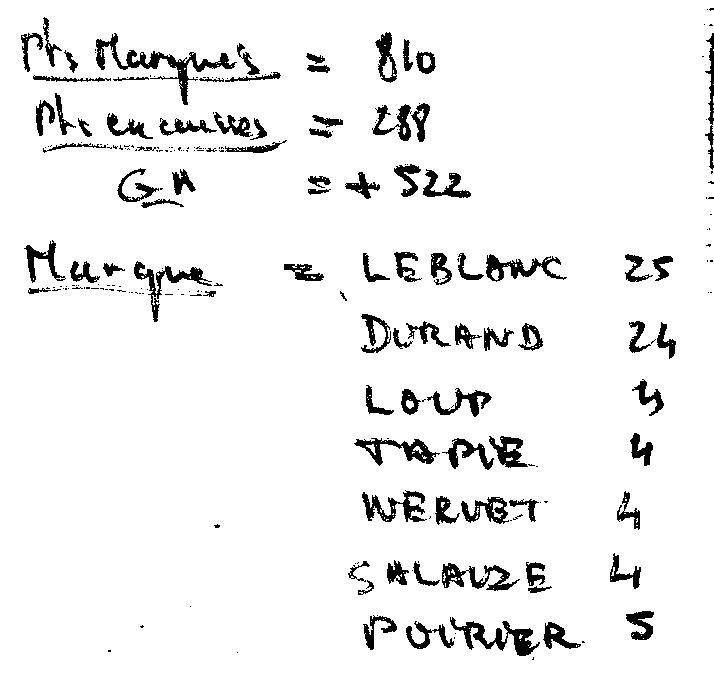 Pts Marqués = 810
Pts encaissés = 288
G.A = + 522
Marque = LEBLANC 25
DURAND 24
LOUP
TAPIE 4
WERVET 4
SALAUZE 4
POIRIER 5